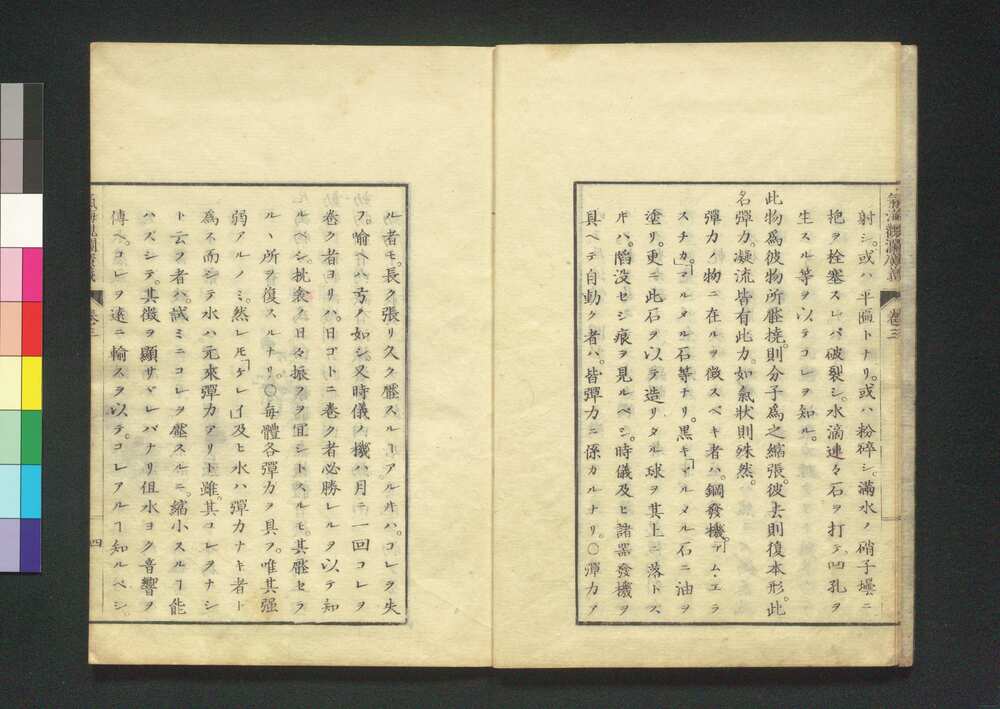 氣海觀瀾廣義
卷三
射シ。或ハ平匾トナリ。或ハ粉碎シ。滿水ノ硝子壜ニ
抱ヲ栓塞スレバ破裂シ。水滴連々石ヲ打テ。凹孔ヲ
生スル等ヲ以テコレヲ知ル。
此物爲彼物所壓撓。則分子爲之縮張。彼去則復本形。此
名彈力。凝流皆有此力。如氣狀則殊然。
彈力ノ物ニ在ルヲ徵スベキ者ハ。鋼發機。デム・エラ
スチカ。マルメル石等ナリ。黑キマルメル石ニ油ヲ
塗リ。更ニ此石ヲ以テ造リタル球ヲ其上ニ落トス
ヰハ。陷没セシ痕ヲ見ルベシ。時儀及ヒ諸器發機ヲ
具ヘテ自動ク者ハ。皆彈力ニ係カルナリ。○彈力ア
ル者モ。長ク張リ久ク壓スルヿアルヰハ。コレヲ失
フ。喻ヘハ弓ノ如シ。又時儀ノ機ハ月ニ一回コレヲ
卷ク者ヨリハ。日ゴトニ卷ク者必勝レルヲ以テ知
ルベシ。枕衾ノ日々振フヲ宜シトスルモ。其壓セラ
ルヽ所ヲ復スルナリ。○每體各彈力ヲ具フ。唯其强
弱アルノミ。然レ𪜈ゲレイ及ヒ水ハ彈力ナキ者ト
爲ス。而シテ水ハ元來彈力アリト雖。其コレヲナシ
ト云フ者ハ。試ミニコレヲ壓スルニ。縮小スルヿ能
ハズシテ。其徵ヲ顯サヾレバナリ但水ヨク音響ヲ
傳ヘ。コレヲ遠ニ輸スヲ以テ。コレアルヿ知ルベシ。
卷三
四